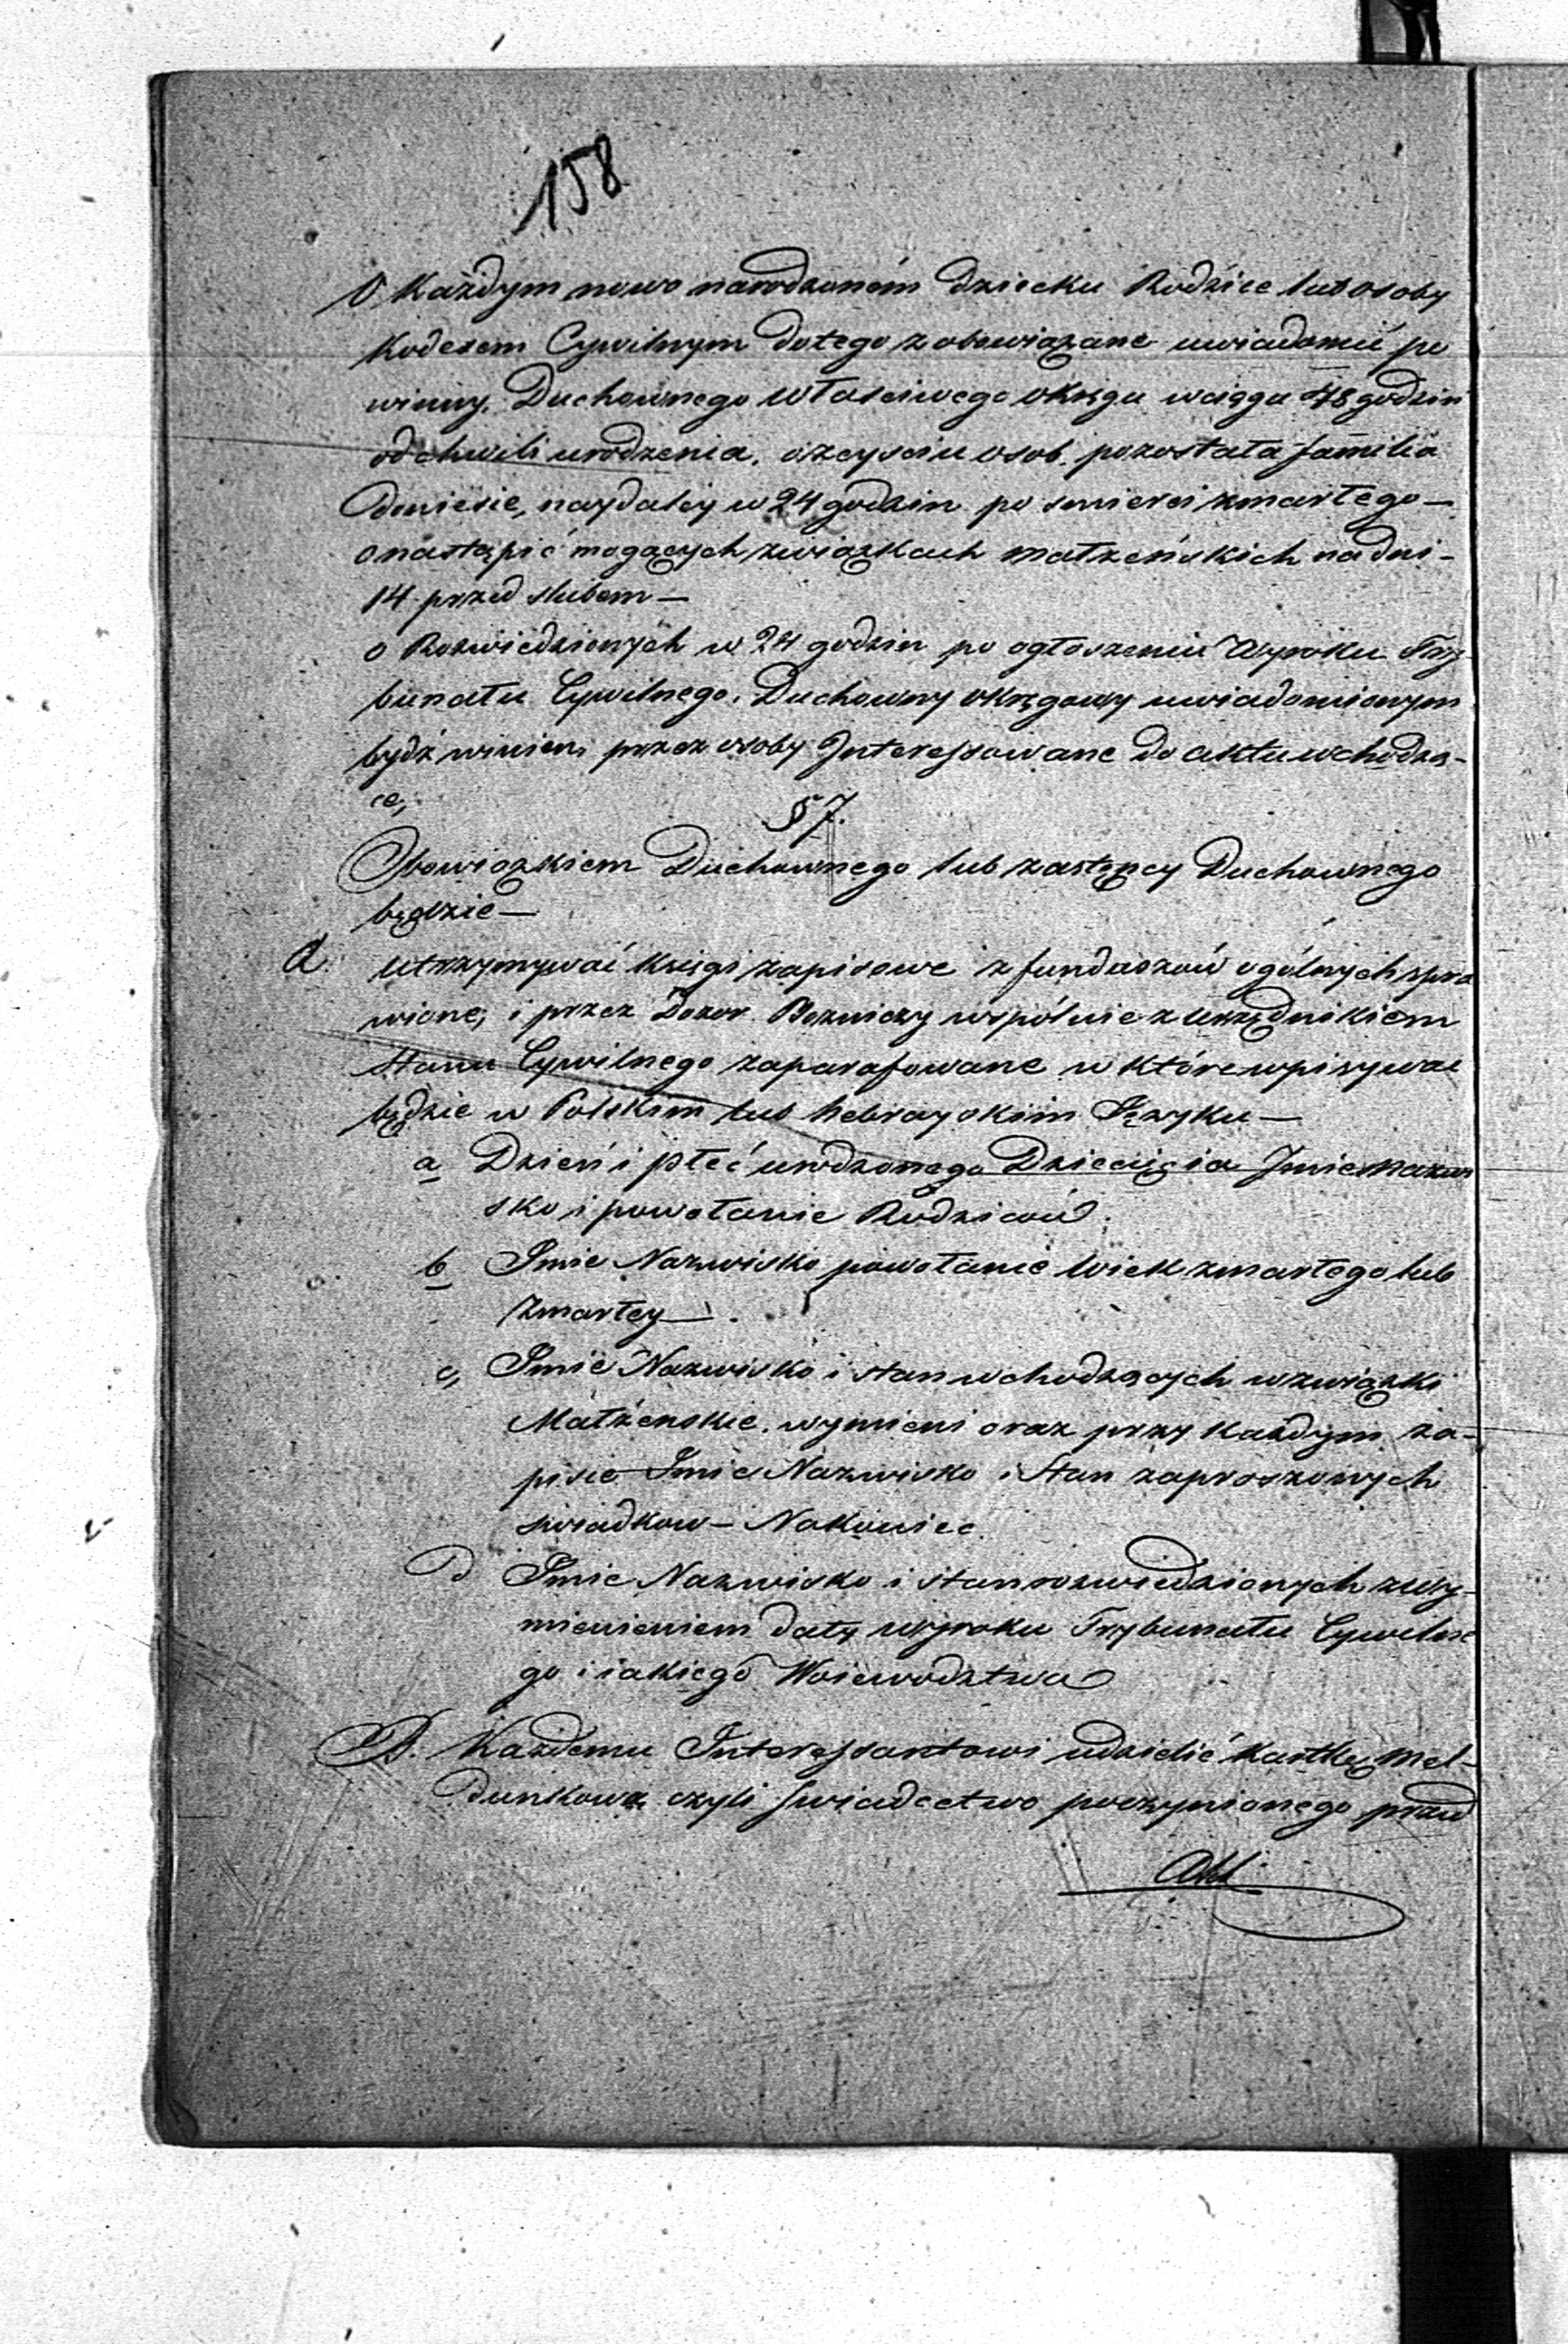 158
O Każdym nowo narodzoném Dziecku Rodzice lub osoby
Kodexem Cywilnym do tego zobowiązane uwiadomić po
winny, Duchownego właściwego okręgu w ciągu 48 godzin
od chwili urodzenia. o zeyściu osob. pozostała familia
doniesie, naydaley w 24 godzin po smierci zmarłego —
o nastąpić mogących związkach małżeńskich na dni -
14 przed slubem —
o Rozwiedzionych w 24 godzin po ogłoszeniu Wyroku Try-
bunału Cywilnego. Duchowny okręgowy uwiadomionym
bydź winien, przez osoby Interessowane do aktu wchodzą-
ce,
§ 7.
Obowiązkiem Duchownego lub zastępcy Duchownego
będzie —
A. utrzymywać księgi zapisowe z funduszów ogólnych spra
wione, i przez Dozor Bożniczy wspólnie z urzędnikiem
stanu Cywilnego zaparafowane w które wpisywać
będzie w Polskim lub hebrayskim Języku —
a Dzień i płeć urodzonego Dziecięcia Jmie Nazwi
sko i powołanie Rodziców.
b Jmie Nazwisko powołanie Wiek zmarłego lub
zmarłey —.
c, Jmie Nazwisko i stan wchodzących w związki
Małżenskie. wymieni oraz przy każdym za-
pisie Jmie Nazwisko i Stan zaproszonych
swiadkow — Nakoniec
d Jmie Nazwisko i stan rozwiedzionych z wy-
mienieniem daty wyroku Trybunału Cywilne
go i iakiego Woiewodztwa
B. Każdemu Interessantowi udzielić kartkę mel-
dunkową czyli swiadectwo poczynionego przed